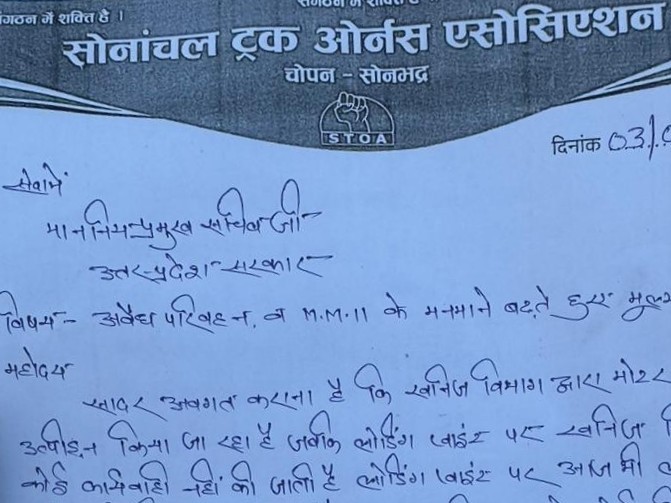 संगठन में शक्ति है ।
संगठन में शक्ति है
सोनांचल ट्रक ओर्नस एसोसिएशन
चोपन - सोनभद्र
STOA
दिनांक 03/
सेवामें
माननिय प्रमुख सचिव जी
उत्तर-प्रदेश सरकार
विषय - अवैध परिवहन, व M.M.11 के मनमाने बढ़ते हुए मूल्य
महोदय
सादर अवगत कराना है कि खनिज विभाग द्वारा मोटर
उत्पीड़न किया जा रहा है जबकि लोडिंग प्वाइंट पर खनिज
कोई कार्यवाही नहीं की जाती है लोडिंग प्वाइंट पर आज भी